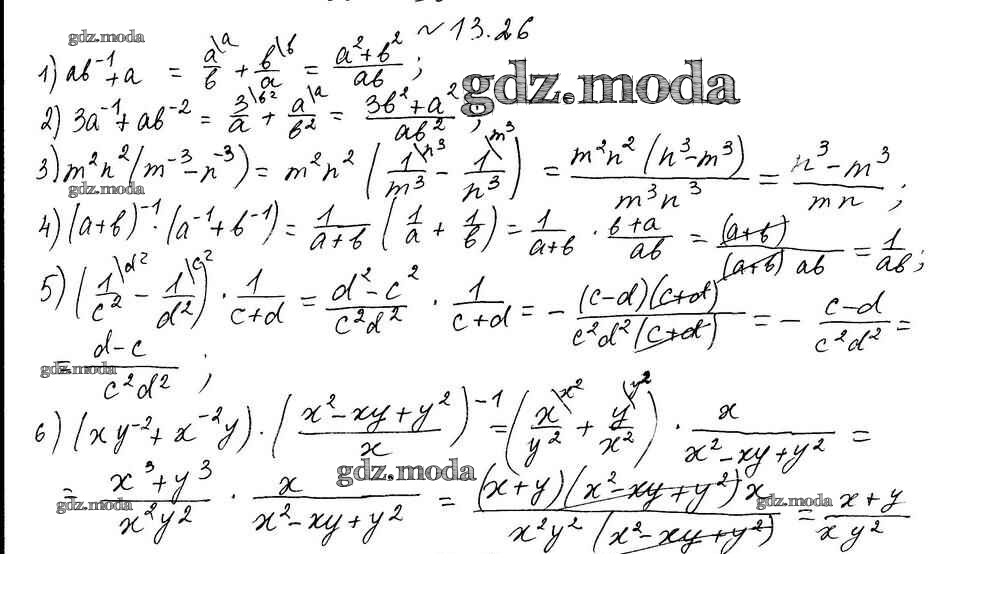 ~ 13.26
gdz.moda
1) ab⁻¹ + a = a\a/b + b\b/a = (a² + b²)/ab ;
gdz.moda
2) 3a⁻¹ + ab⁻² = 3\b²/a + a\a/b² = (3b² + a²)/ab² ;
3) m²n²(m⁻³ - n⁻³) = m²n² (1\n³/m³ - 1\m³/n³) = m²n²(n³ - m³)/m³n³ = (n³ - m³)/mn ;
gdz.moda
4) (a+b)⁻¹ · (a⁻¹ + b⁻¹) = 1/(a+b) (1/a + 1/b) = 1/(a+b) · (b+a)/ab = (a+b)/((a+b) ab) = 1/ab ;
5) (1\d²/c² - 1\c²/d²) · 1/(c+d) = (d² - c²)/c²d² · 1/(c+d) = - (c-d)(c+d)/(c²d²(c+d)) = - (c-d)/c²d² =
= (d-c)/c²d² ;
gdz.moda
6) (xy⁻² + x⁻²y) · ((x² - xy + y²)/x)⁻¹ = (x\x²/y² + y\y²/x²) · x/(x² - xy + y²) =
gdz.moda
= (x³ + y³)/x²y² · x/(x² - xy + y²) = (x+y)(x² - xy + y²)x/(x²y²(x² - xy + y²)) = (x+y)/xy²
gdz.moda
gdz.moda